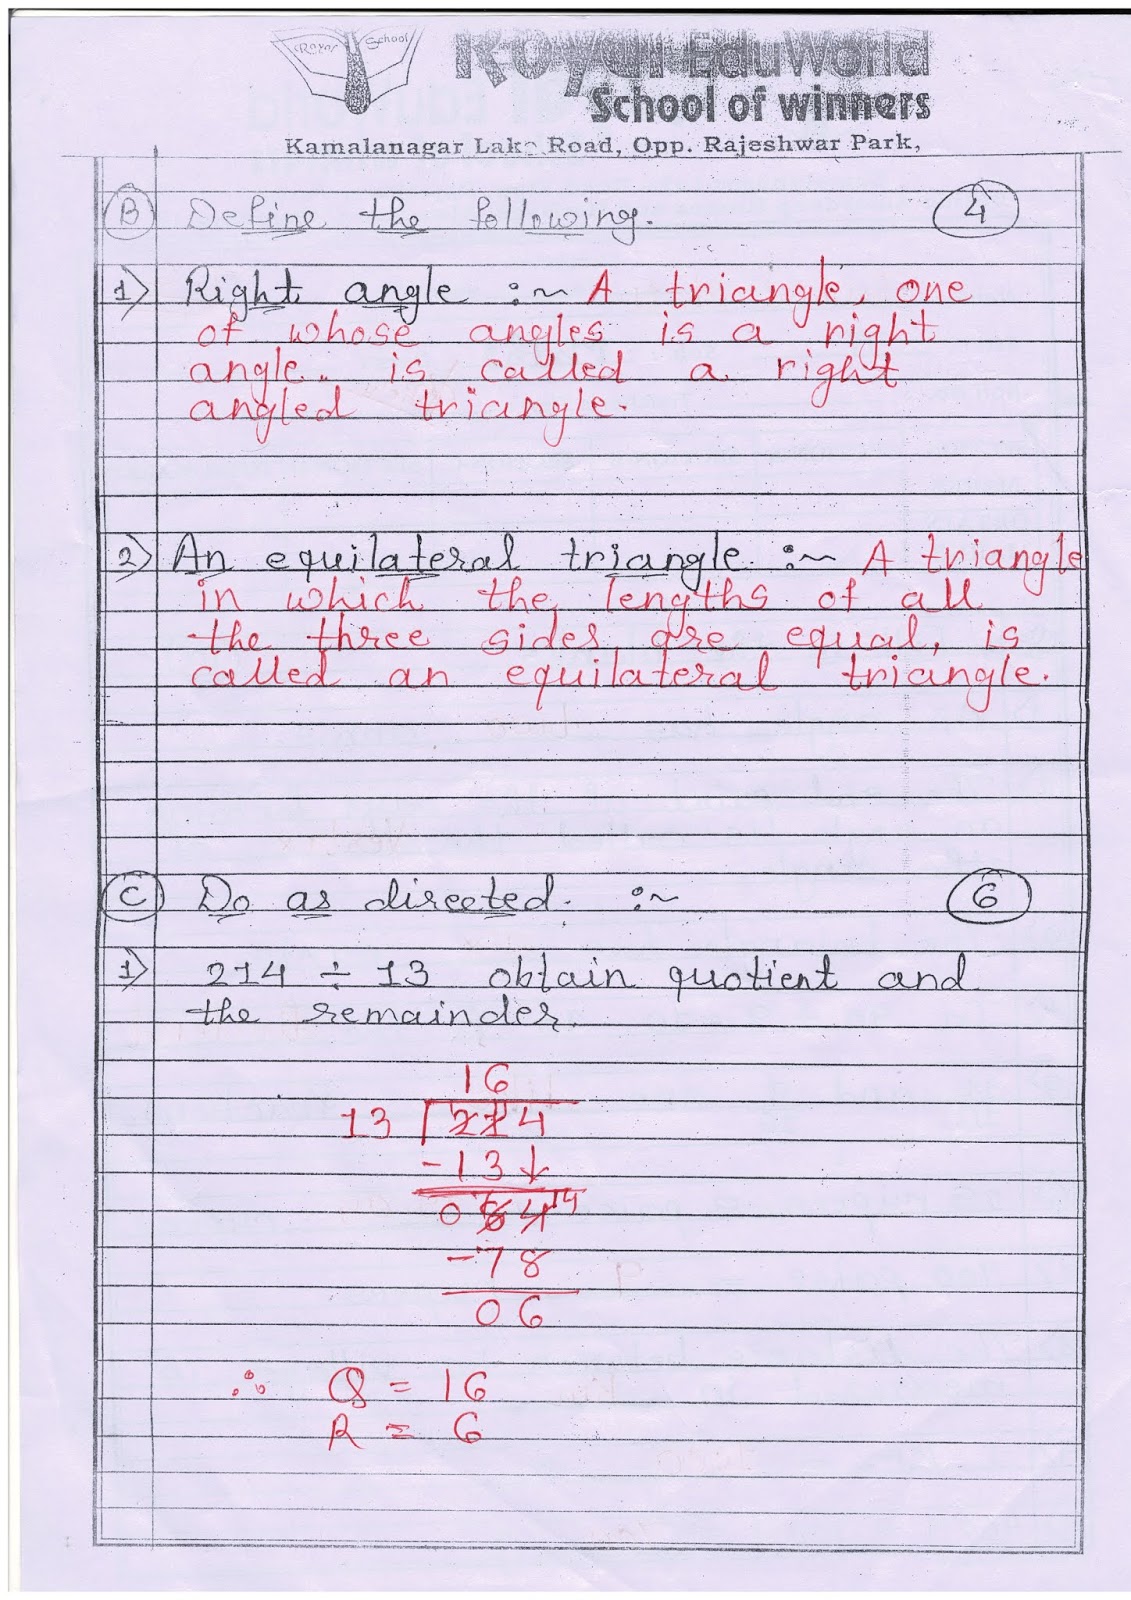 Royal School
Royal EduWorld
School of winners
Kamalanagar Lake Road, Opp. Rajeshwar Park,
B Define the following. 4
1) Right angle :~ A triangle, one
of whose angles is a right
angle.. is called a right
angled triangle.
2) An equilateral triangle :~ A triangle
in which the lengths of all
the three sides are equal, is
called an equilateral triangle.
C Do as directed. :~ 6
1) 214 ÷ 13 obtain quotient and
the remainder.
16
13 214
-13↓
0 84 14
-78
06
∴ Q = 16
R = 6